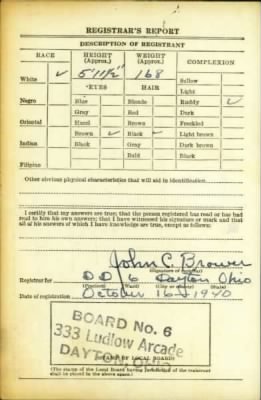 REGISTRAR'S REPORT
DESCRIPTION OF REGISTRANT
RACE HEIGHT (Approx.) WEIGHT (Approx.) COMPLEXION
White ✓ 5' 11½" 168 Sallow
EYES HAIR Light
Negro Blue Blonde Ruddy ✓
Gray Red Dark
Oriental Hazel Brown Freckled
Brown ✓ Black ✓ Light brown
Indian Black Gray Dark brown
Bald Black
Filipino
Other obvious physical characteristics that will aid in identification
I certify that my answers are true; that the person registered has read or has had
read to him his own answers; that I have witnessed his signature or mark and that
all of his answers of which I have knowledge are true, except as follows:
John C. Brower
(Signature of registrar)
Registrar for D D 6 Dayton Ohio
(Precinct) (Ward) (City or county) (State)
Date of registration October 16 - 1940
BOARD No. 6
333 Ludlow Arcade
DAYTON, OHIO
(STAMP OF LOCAL BOARD)
(The stamp of the Local Board having jurisdiction of the registrant
shall be placed in the above space.)